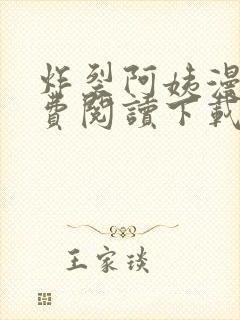 炸裂阿姨漫
費閱讀下載
王家琰